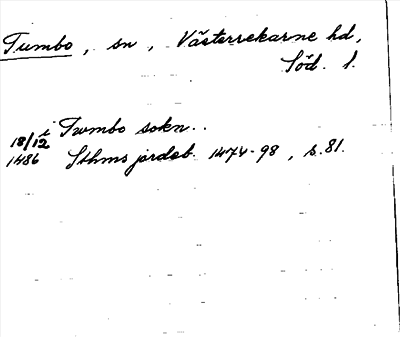 Tumbo, sn, Västerrekarne hd,
Söd. l.
i Tumbo sokn..
18/12
1486 Sthms jordab. 1474-98, s.81.